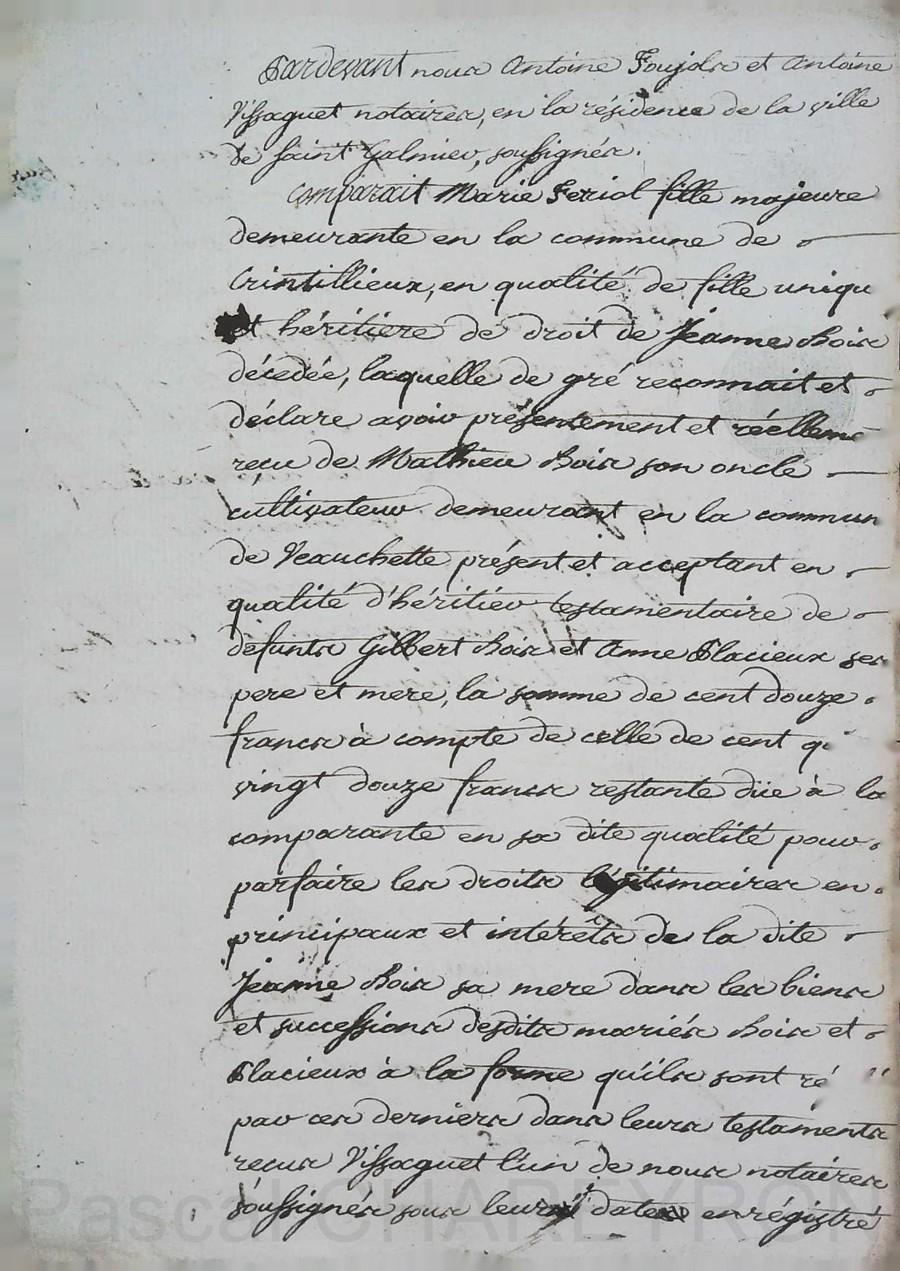 Pardevant nous Antoine Foujols et Antoine
Vissaguet notaires, en la résidence de la ville
de saint Galmier, soussignés.
comparait Marie Feriol fille majeure
demeurante en la commune de
Crintillieux, en qualité de fille uniqu
et héritiere de droit de Jeanne Bois
décedée, laquelle de gré reconnait et
déclare avoir présentement et réelleme
reçu de Mathieu Bois son oncle
cultivateur demeurant en la commun
de Veauchette présent et acceptant en
qualité d'héritier testamentaire de
defunts Gilbert Bois et Anne Blacieux ses
pere et mere, la somme de cent douze
francs à compte de celle de cent q
vingt douze francs restante düe à la
comparante en sa dite qualité pour
parfaire les droits légitimaires en
principaux et intérêts de la dite
Jeanne Bois sa mere dans les biens
et successions desdits mariés Bois et
Blacieux à la forme qu'ils sont ré
par ces derniers dans leurs testaments
reçus Vissaguet l'un de nous notaires
soussignés sous leurs dates enrégistré
Pascal CHAREYRON